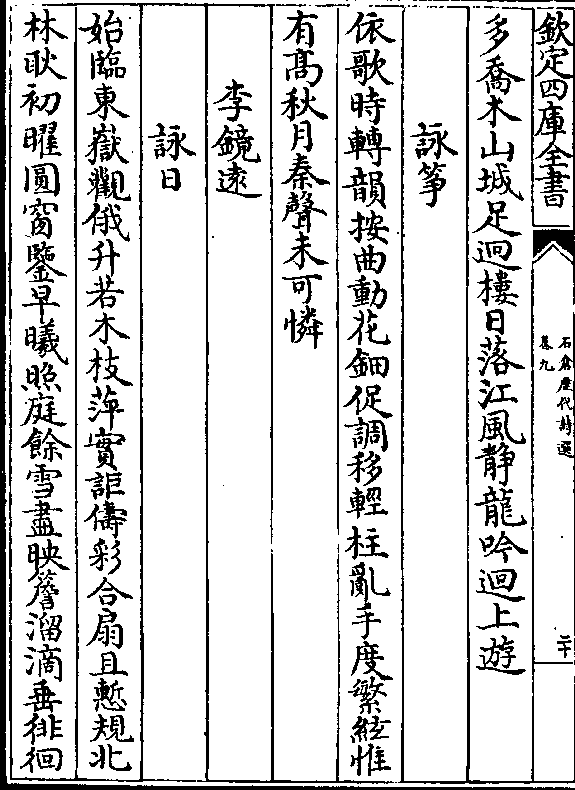 欽定四庫全書
石倉歷代詩選
卷九
二十
多喬木山城足迥樓日落江風静龍吟迴上遊
詠筝
依歌時轉韻按曲動花鈿促調移輕柱亂手度繁絃惟
有髙秋月秦聲未可憐
李鏡遠
詠日
始臨東嶽觀俄升若木枝萍實詎儔彩合扇且慙規北
林耿初曜圓窗鑒早曦照庭餘雪盡映簷溜滴垂徘徊